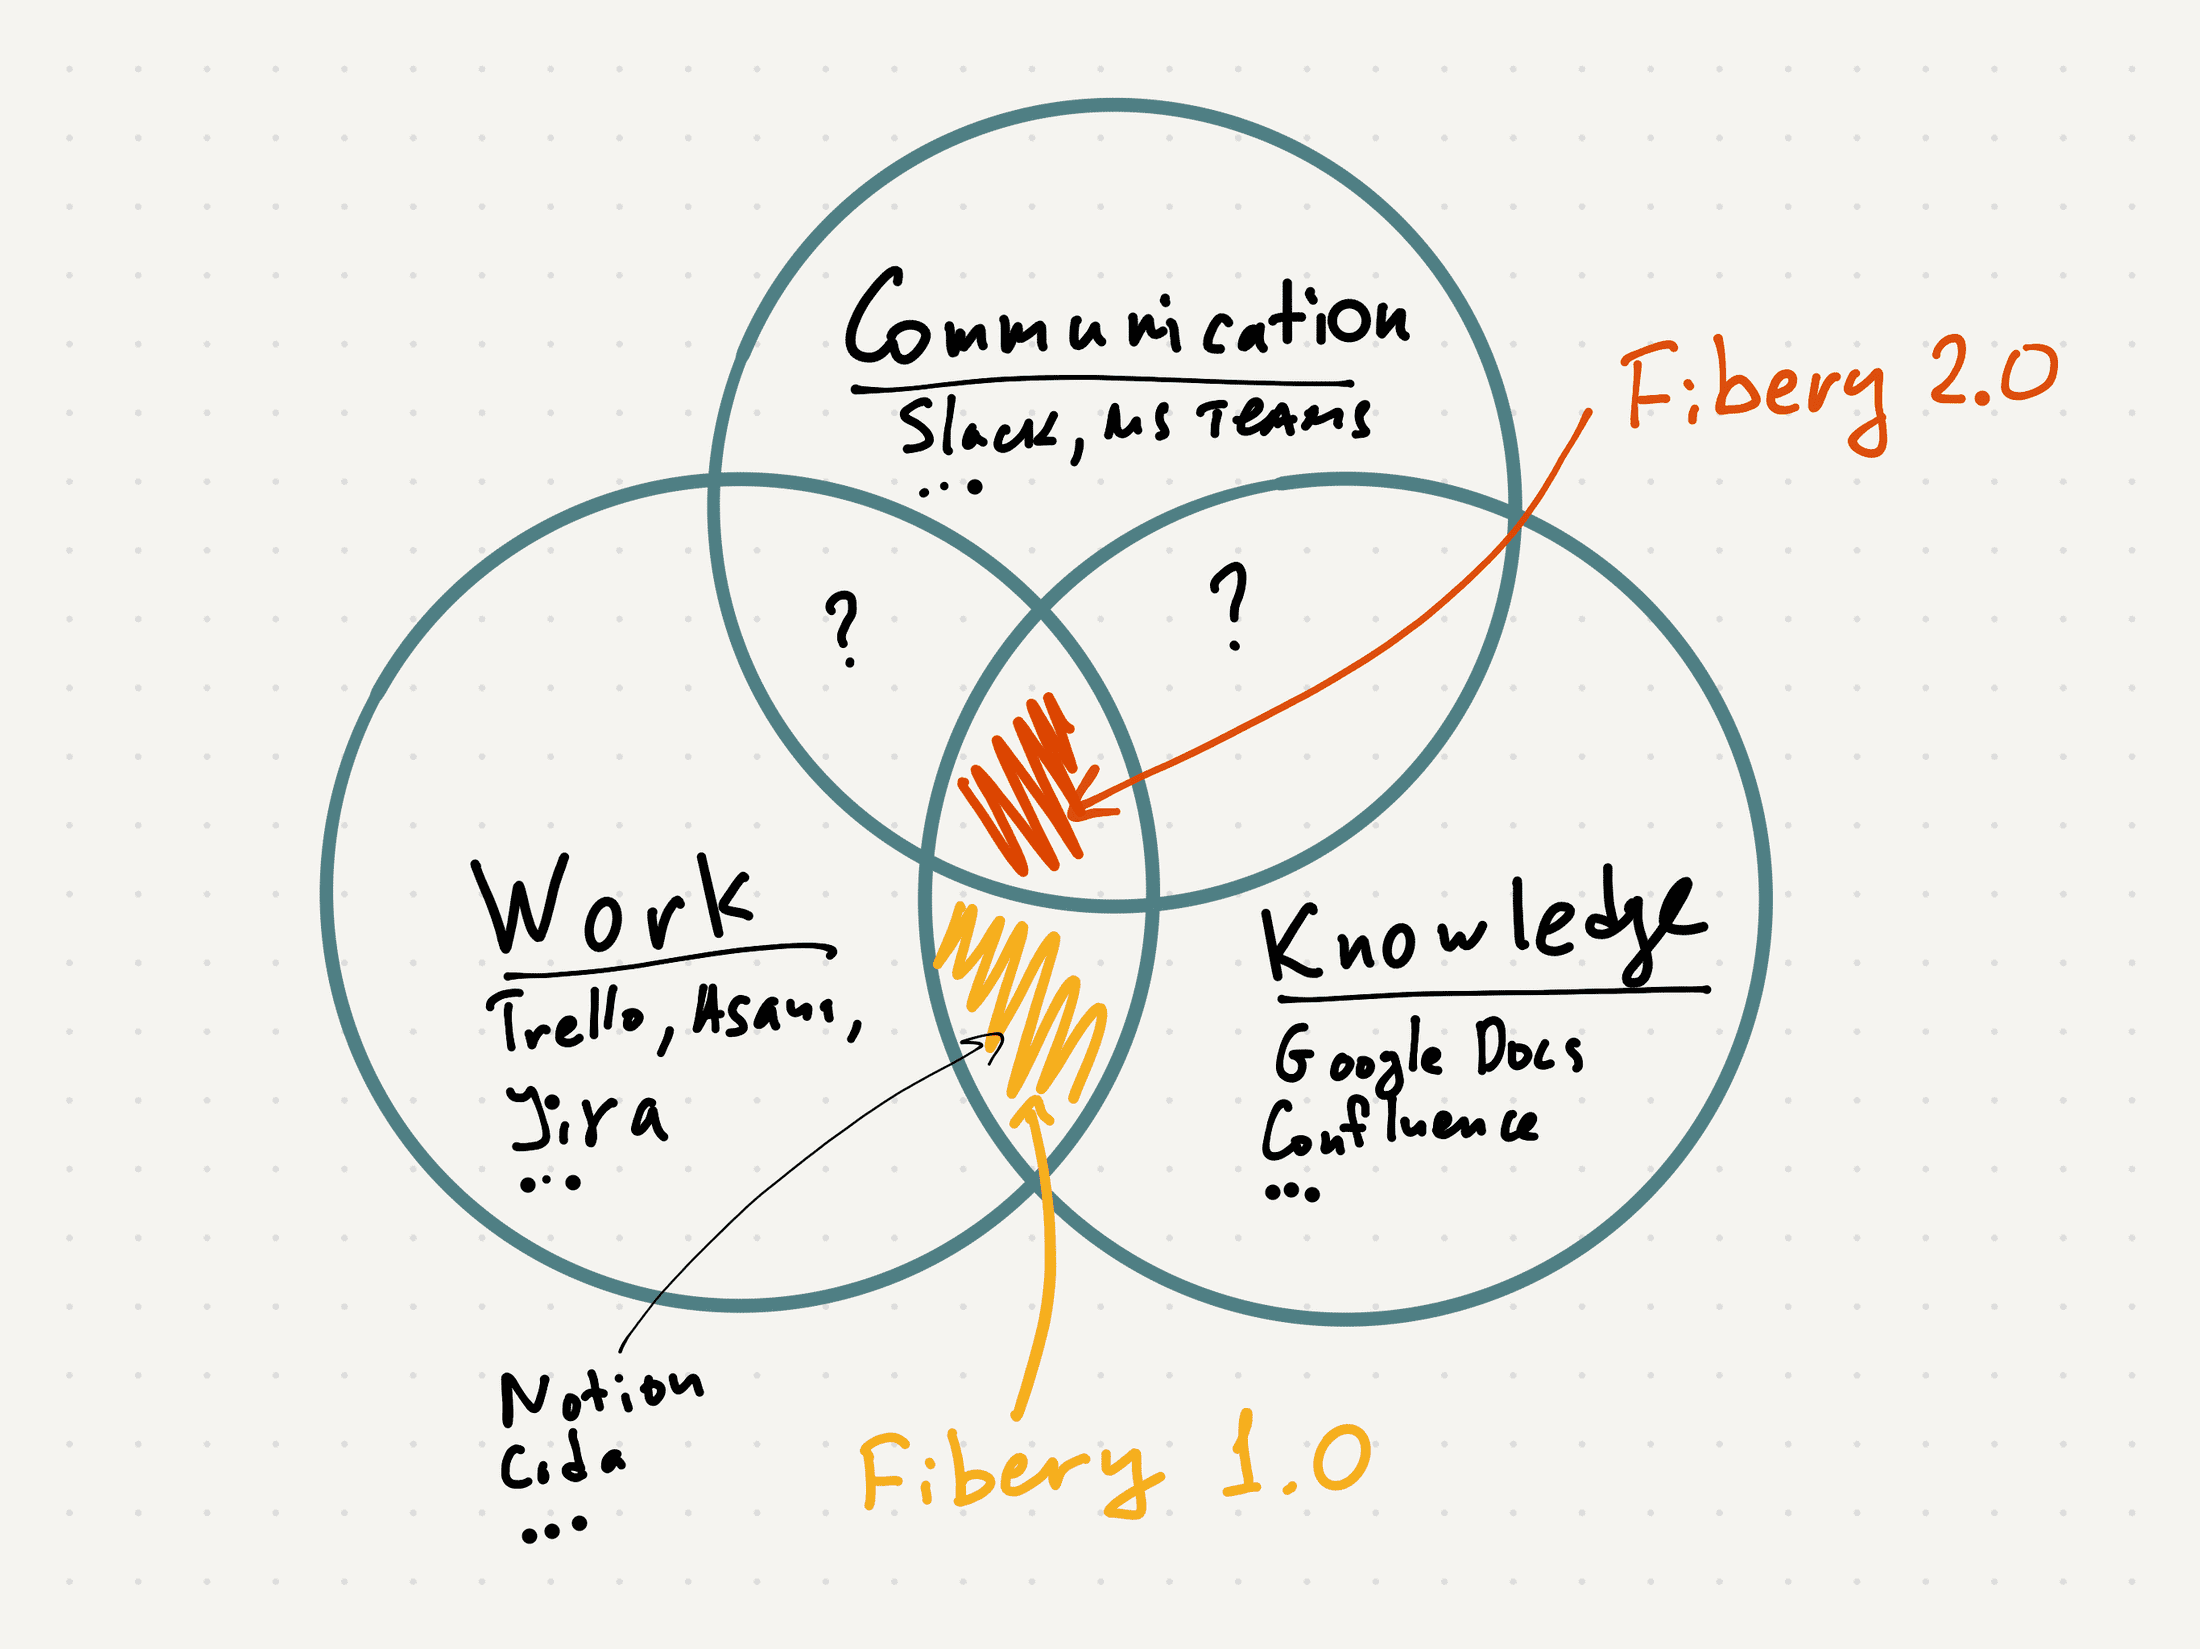 Communication
Slack, MS Teams
...
Fibery 2.0
?
?
Work
Trello, Asana,
Jira
...
Knowledge
Google Docs
Confluence
...
Notion
Coda
...
Fibery 1.0